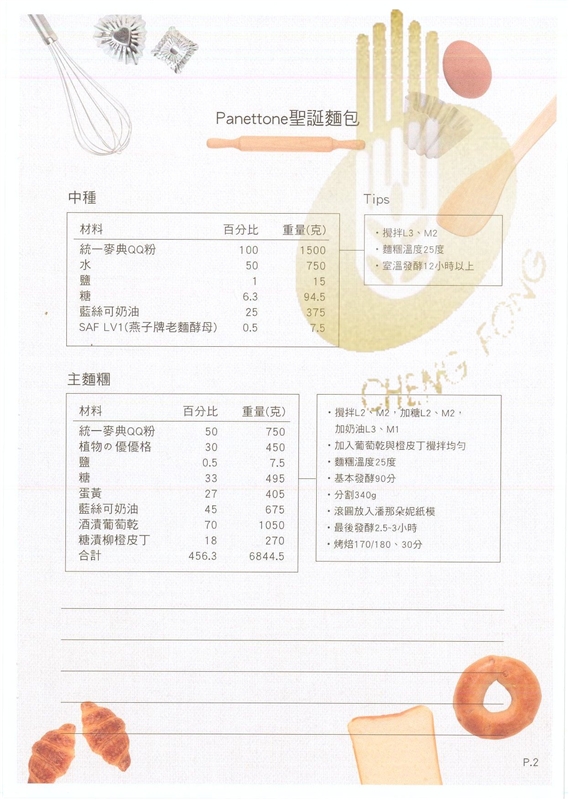 Panettone聖誕麵包
中種
材料 百分比 重量(克)
統一麥典QQ粉 100 1500
水 50 750
鹽 1 15
糖 6.3 94.5
藍絲可奶油 25 375
SAF LV1(燕子牌老麵酵母) 0.5 7.5
Tips
・攪拌L3、M2
・麵糰溫度25度
・室溫發酵12小時以上
CHENG FONG
主麵糰
材料 百分比 重量(克)
統一麥典QQ粉 50 750
植物の優優格 30 450
鹽 0.5 7.5
糖 33 495
蛋黃 27 405
藍絲可奶油 45 675
酒漬葡萄乾 70 1050
糖漬柳橙皮丁 18 270
合計 456.3 6844.5
・攪拌L2、M2，加糖L2、M2，
加奶油L3、M1
・加入葡萄乾與橙皮丁攪拌均勻
・麵糰溫度25度
・基本發酵90分
・分割340g
・滾圓放入潘那朵妮紙模
・最後發酵2.5-3小時
・烤焙170/180、30分
P.2